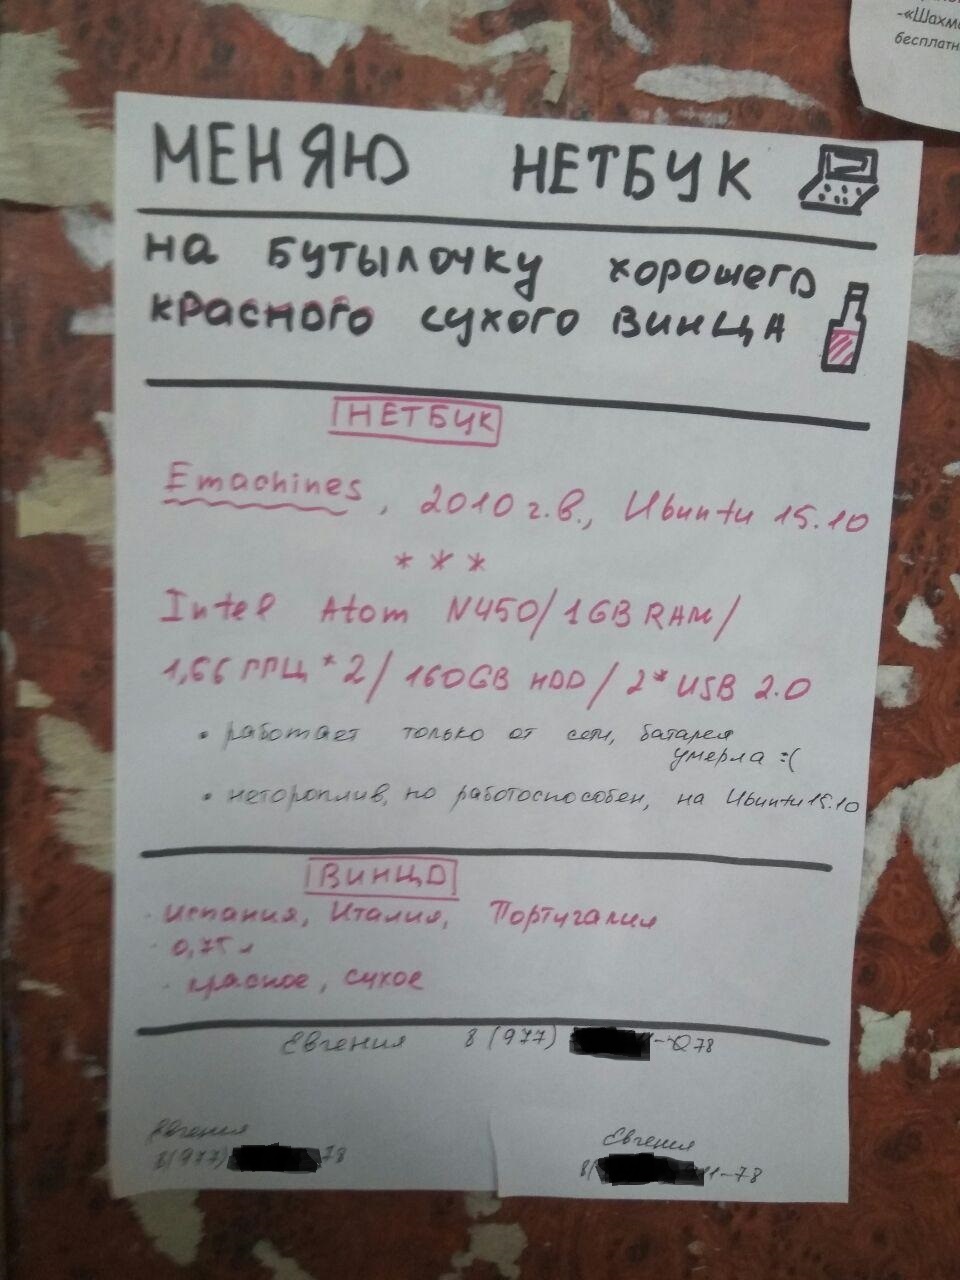 -«Шахм
бесплатн
МЕНЯЮ НЕТБУК
на бутылочку хорошего
красного сухого винца
НЕТБУК
Emachines, 2010 г.в., Ubuntu 15.10
* * *
Intel Atom N450/1GB RAM/
1,66 ГГЦ * 2/160GB HDD/2* USB 2.0
• работает только от сети, батарея
умерла :(
• нетороплив, но работоспособен, на Ubuntu 15.10
ВИНЦО
· Испания, Италия, Португалия
· 0,75 л
· красное, сухое
Евгения 8 (977) 78
Евгения
8(977) 78
Евгения
8( 11-78